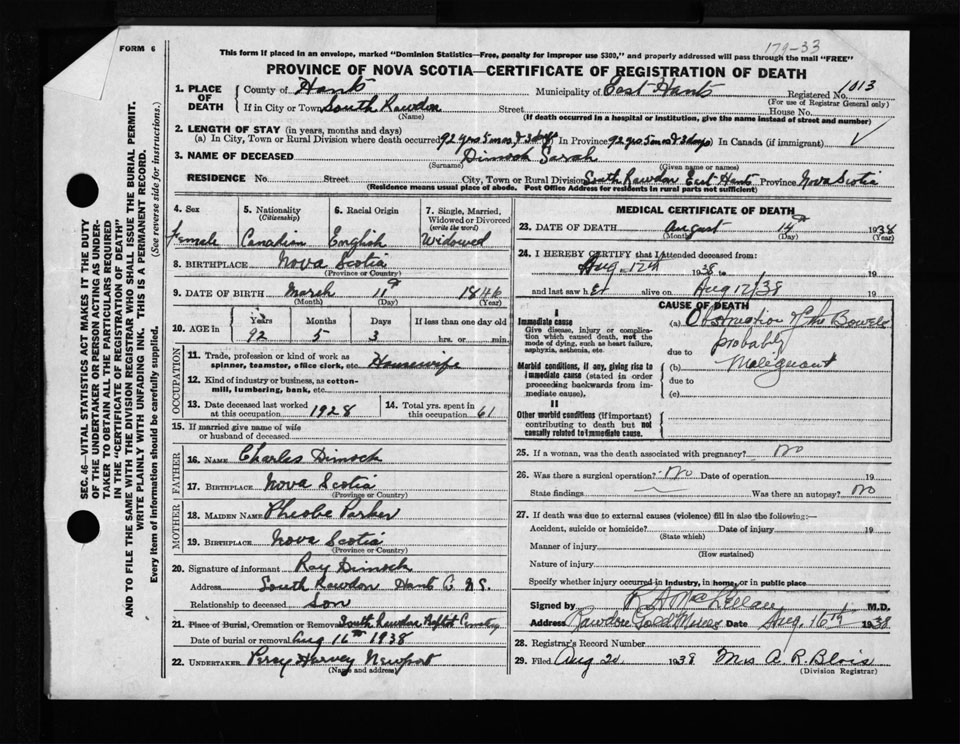 FORM 6
179-33
This form if placed in an envelope, marked "Dominion Statistics—Free, penalty for improper use $300," and properly addressed will pass through the mail "FREE"
PROVINCE OF NOVA SCOTIA—CERTIFICATE OF REGISTRATION OF DEATH
1. PLACE OF DEATH
County of Hants Municipality of East Hants Registered No. 1013
(For use of Registrar General only)
If in City or Town South Rawdon Street House No.
(Name) (If death occurred in a hospital or institution, give the name instead of street and number)
2. LENGTH OF STAY (in years, months and days)
(a) In City, Town or Rural Division where death occurred 92 yrs 5 mos, & 3 days In Province 92 yrs 5 mos & 3 days In Canada (if immigrant)
3. NAME OF DECEASED Dimock Sarah
(Surname) (Given name or names)
RESIDENCE No. Street City, Town or Rural Division South Rawdon East Hants Province Nova Scotia
(Residence means usual place of abode. Post Office Address for residents in rural parts not sufficient)
4. Sex Female
5. Nationality (Citizenship) Canadian
6. Racial Origin English
7. Single, Married, Widowed or Divorced (write the word) Widowed
8. BIRTHPLACE Nova Scotia
(Province or Country)
9. DATE OF BIRTH March 11th 1846
(Month) (Day) (Year)
10. AGE in Years Months Days If less than one day old
92 5 3 hrs. or min.
OCCUPATION
11. Trade, profession or kind of work as spinner, teamster, office clerk, etc. Housewife
12. Kind of industry or business, as cotton-mill, lumbering, bank, etc.
13. Date deceased last worked at this occupation 1928
14. Total yrs. spent in this occupation 61
15. If married give name of wife or husband of deceased
FATHER
16. NAME Charles Dimock
17. BIRTHPLACE Nova Scotia
(Province or Country)
MOTHER
18. MAIDEN NAME Pheobe Parker
19. BIRTHPLACE Nova Scotia
(Province or Country)
20. Signature of informant Ray Dimock
Address South Rawdon Hants Co. N.S.
Relationship to deceased Son
21. Place of Burial, Cremation or Removal South Rawdon Baptist Cemetery
Date of burial or removal Aug 16th 1938
22. UNDERTAKER Percy Harvey Newport
(Name and address)
MEDICAL CERTIFICATE OF DEATH
23. DATE OF DEATH August 14th 1938
(Month) (Day) (Year)
24. I HEREBY CERTIFY that I attended deceased from:
Aug. 12th 1938 to 19
and last saw her alive on Aug 12/38 19
CAUSE OF DEATH
I
Immediate cause
Give disease, injury or complication which caused death, not the mode of dying, such as heart failure, asphyxia, asthenia, etc.
(a) Obstruction of the Bowels
probably
due to
Malignant
Morbid conditions, if any, giving rise to immediate cause (stated in order proceeding backwards from immediate cause).
(b)
due to
(c)
II
Other morbid conditions (if important) contributing to death but not causally related to immediate cause.
25. If a woman, was the death associated with pregnancy? No
26. Was there a surgical operation? No Date of operation 19
State findings Was there an autopsy? No
27. If death was due to external causes (violence) fill in also the following:—
Accident, suicide or homicide? Date of injury 19
(State which)
Manner of injury
(How sustained)
Nature of injury
Specify whether injury occurred in Industry, in home, or in public place
Signed by R A McLellan M.D.
Address Rawdon Gold Mines Date Aug. 16th 1938
28. Registrar's Record Number
29. Filed Aug 20 1938 Mrs A. R. Blois
(Division Registrar)
SEC. 46—VITAL STATISTICS ACT MAKES IT THE DUTY
OF THE UNDERTAKER OR PERSON ACTING AS UNDER-
TAKER TO OBTAIN ALL THE PARTICULARS REQUIRED
IN THE "CERTIFICATE OF REGISTRATION OF DEATH"
AND TO FILE THE SAME WITH THE DIVISION REGISTRAR WHO SHALL ISSUE THE BURIAL PERMIT.
WRITE PLAINLY WITH UNFADING INK. THIS IS A PERMANENT RECORD.
Every item of information should be carefully supplied. (See reverse side for instructions.)